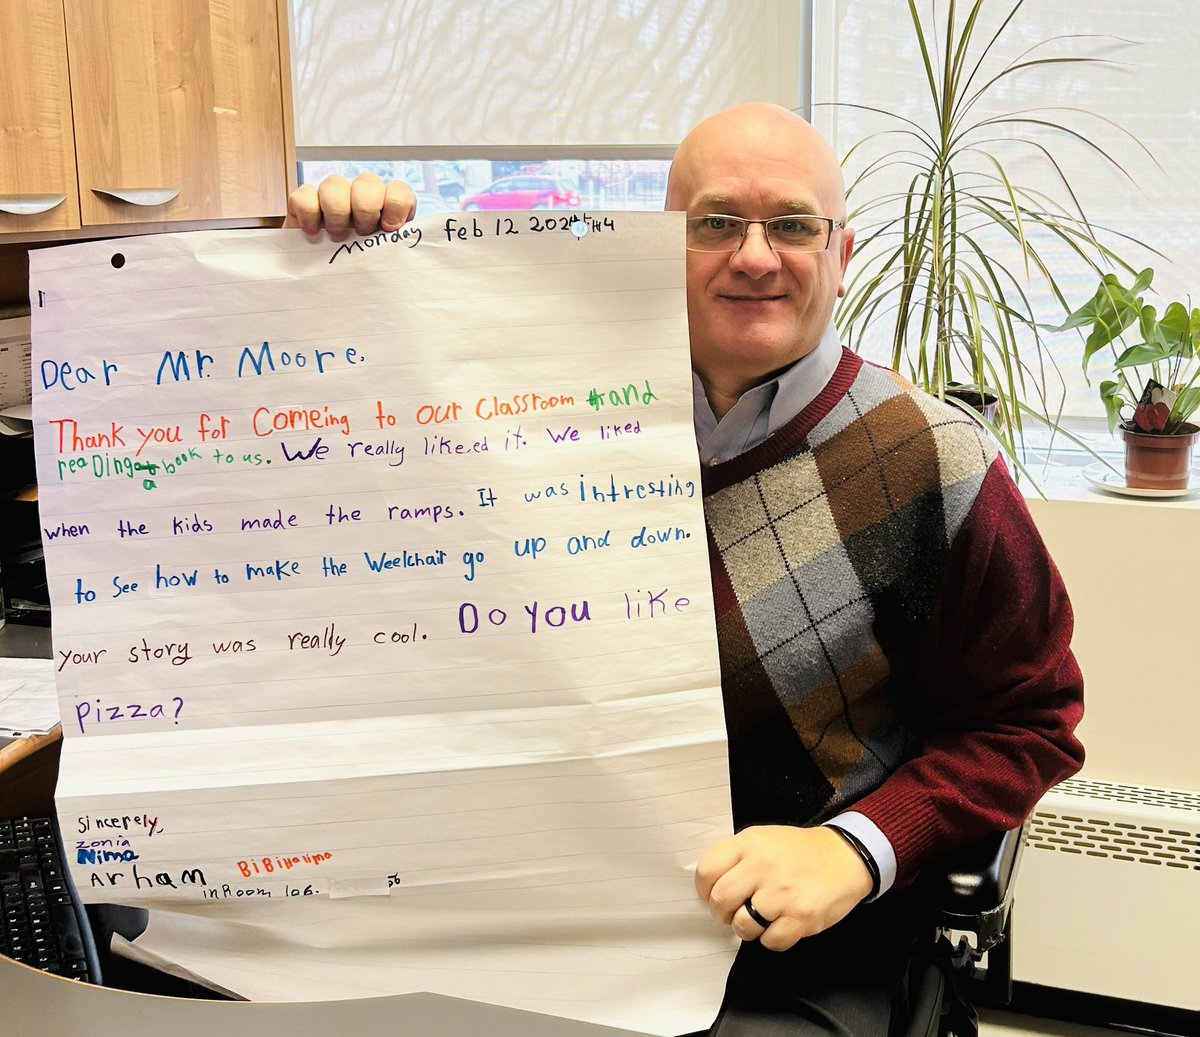 Monday Feb 12 2024
Dear Mr. Moore.
Thank you for Comeing to our Classroom and
reaDing a book to us. We really likeed it. We liked
when the kids made the ramps. It was intresting
to see how to make the Weelchair go up and down.
your story was really cool. Do you like
pizza?
Sincerely,
zonia
Nima
Arham BiBiHalima
in Room 106.